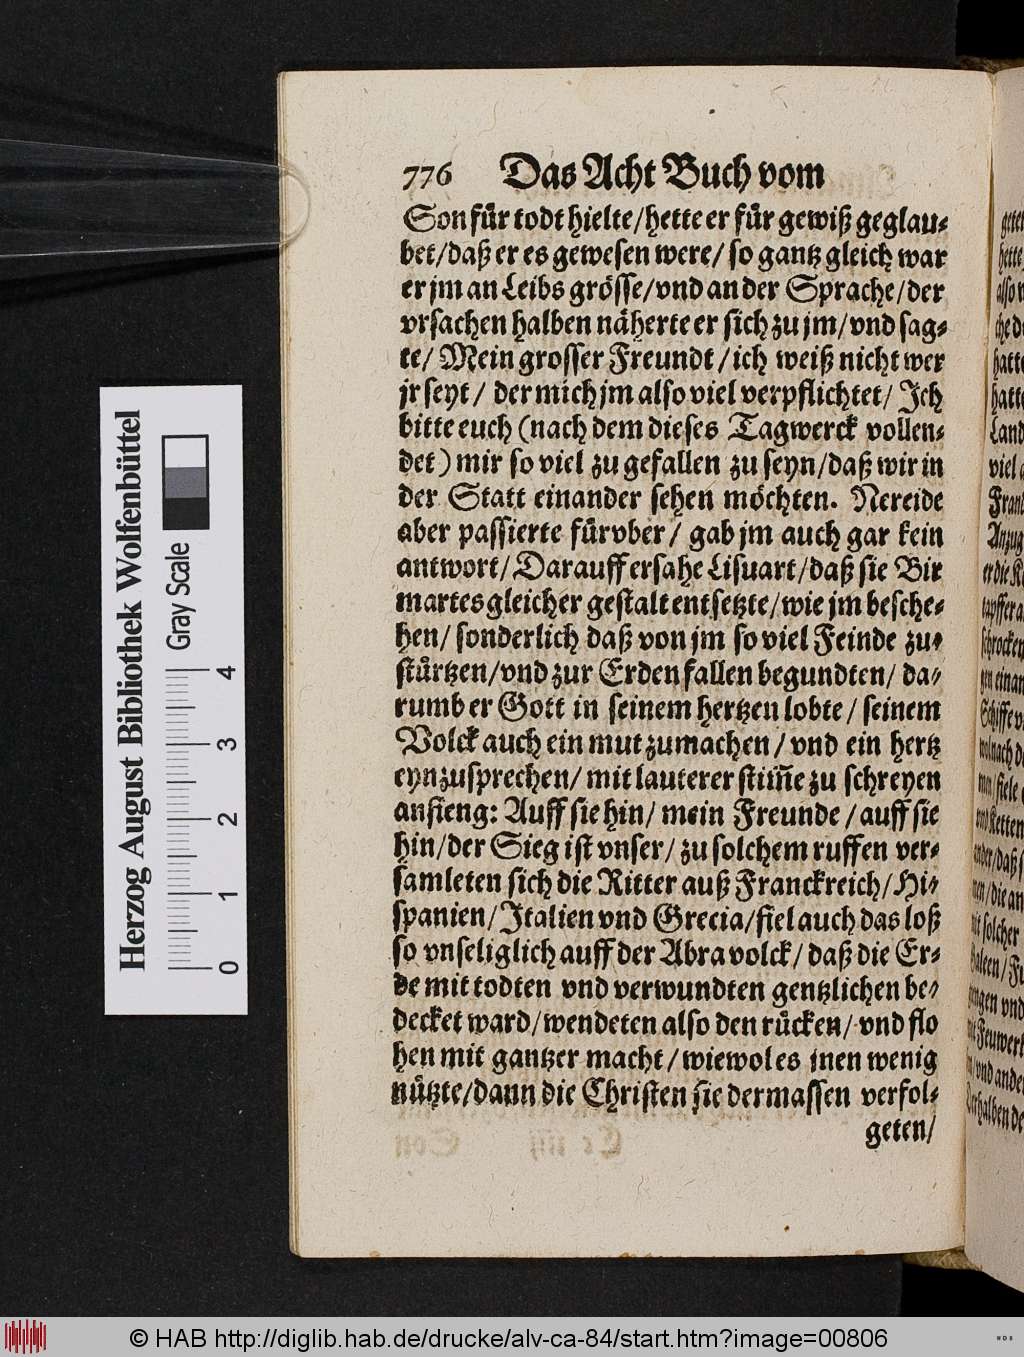 776 Das Acht Buch vom
Son für todt hielte/hette er für gewiß geglau-
bet/daß er es gewesen were/ so gantz gleich war
er jm an Leibs grösse/vnd an der Sprache/der
vrsachen halben näherte er sich zu jm/vnd sag-
te/ Mein grosser Freundt/ich weiß nicht wer
jr seyt/ der mich jm also viel verpflichtet/ Ich
bitte euch (nach dem dieses Tagwerck vollen-
det) mir so viel zu gefallen zu seyn/daß wir in
der Statt einander sehen möchten. Nereide
aber passierte fürvber/ gab jm auch gar kein
antwort/Darauff ersahe Lisuart/daß sie Bir
martes gleicher gestalt entsetzte/wie jm besche-
hen/ sonderlich daß von jm so viel Feinde zu-
stürtzen/vnd zur Erden fallen begundten/ da-
rumb er Gott in seinem hertzen lobte/ seinem
Volck auch ein mut zumachen/ vnd ein hertz
eynzusprechen/ mit lauterer stim̄e zu schreyen
anfieng: Auff sie hin/ mein Freunde/auff sie
hin/der Sieg ist vnser/ zu solchem ruffen ver-
samleten sich die Ritter auß Franckreich/Hi-
spanien/Italien vnd Grecia/fiel auch das loß
so vnseliglich auff der Abra volck/ daß die Er-
de mit todten vnd verwundten gentzlichen be-
decket ward/wendeten also den rücken/ vnd flo
hen mit gantzer macht/ wiewol es jnen wenig
nützte/dann die Christen sie dermassen verfol-
geten/
Herzog August Bibliothek Wolfenbüttel
Gray Scale
0 1 2 3 4
hette
hatte
hatte
Land
viel
© HAB http://diglib.hab.de/drucke/alv-ca-84/start.htm?image=00806